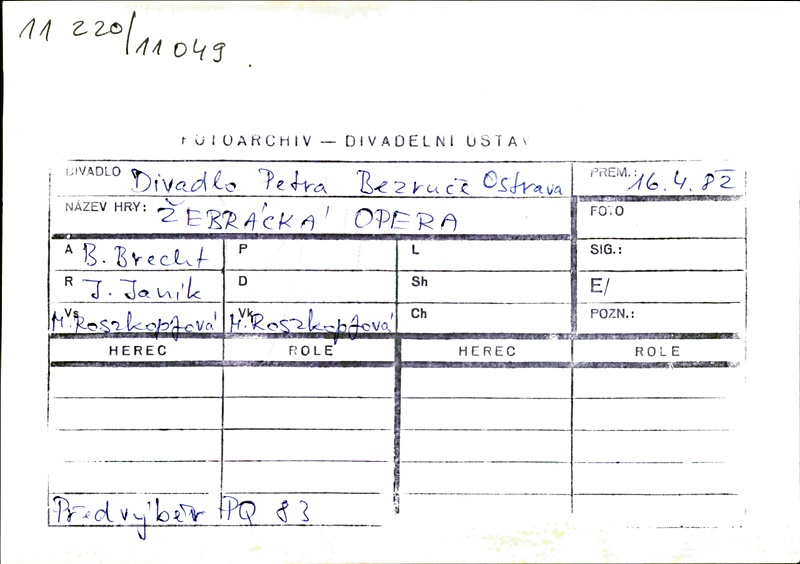 11 220/11 049.
FOTOARCHIV — DIVADELNÍ ÚSTAV
DIVADLO Divadlo Petra Bezruče Ostrava PREM.: 16.4.82
NÁZEV HRY: ŽEBRÁCKÁ OPERA FOTO
A B. Brecht P L SIG.:
R J. Janík D Sh E/
Vs M. Roszkopfová Vk M. Roszkopfová Ch POZN.:
HEREC ROLE HEREC ROLE
Předvýběr PQ 83